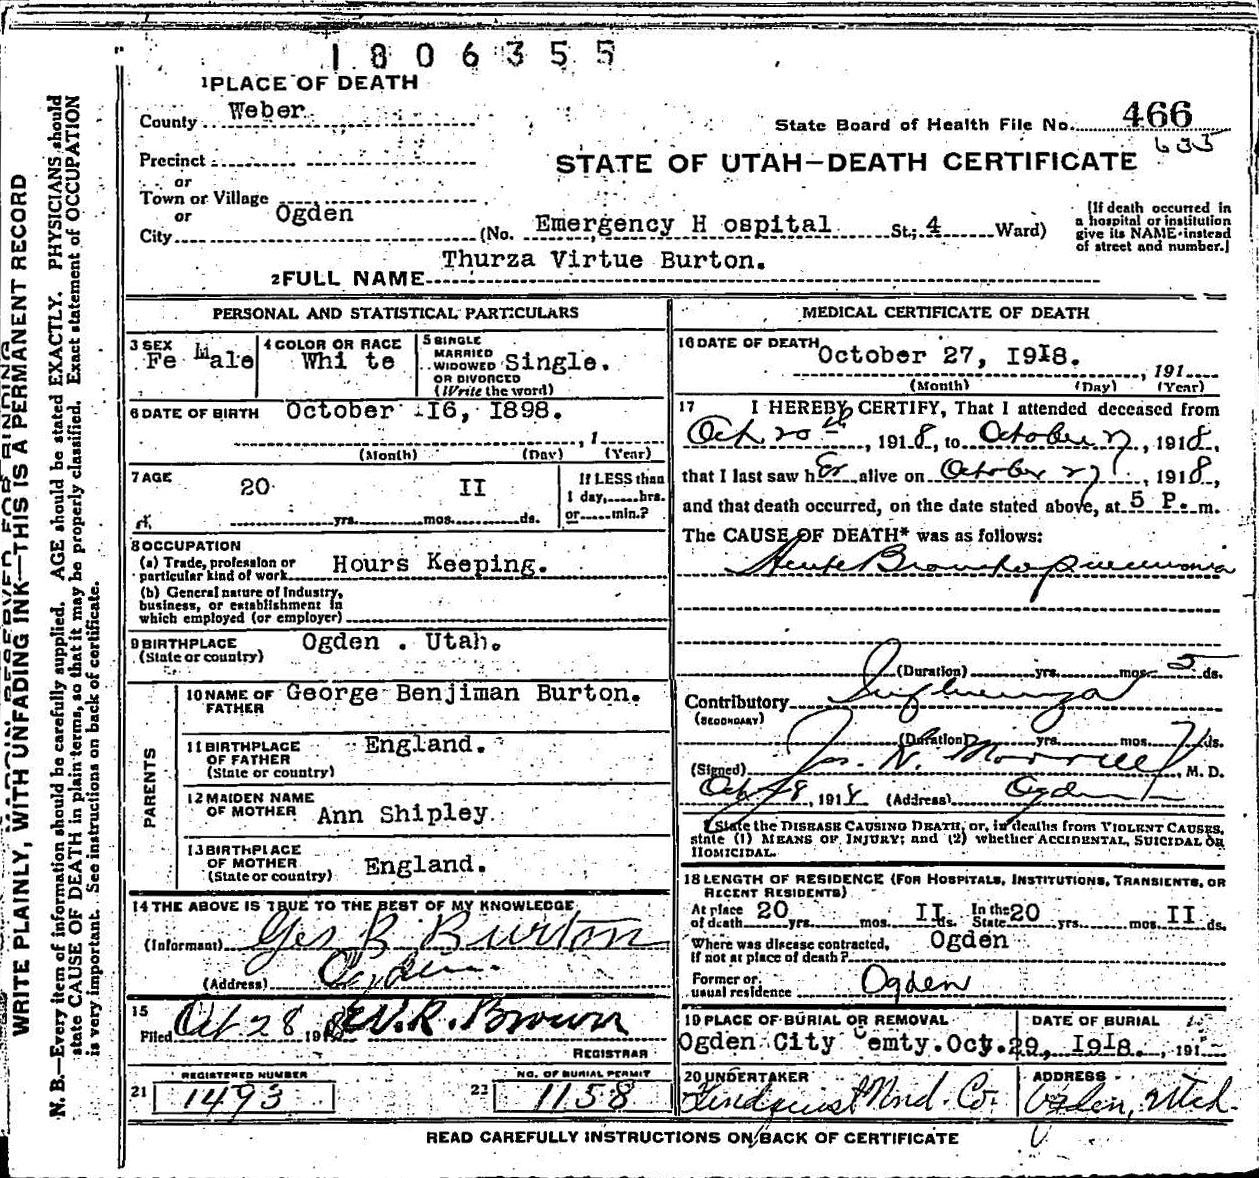 1806355
1 PLACE OF DEATH
County Weber
State Board of Health File No. 466
635
Precinct
or
STATE OF UTAH—DEATH CERTIFICATE
Town or Village
or
City Ogden (No. Emergency H ospital St.; 4 Ward)
[If death occurred in
a hospital or institution
give its NAME instead
of street and number.]
2 FULL NAME Thurza Virtue Burton.
PERSONAL AND STATISTICAL PARTICULARS
3 SEX
Fe male
4 COLOR OR RACE
Whi te
5 SINGLE
MARRIED
WIDOWED
OR DIVORCED
(Write the word)
Single.
6 DATE OF BIRTH October 16, 1898.
, 1
(Month) (Day) (Year)
7 AGE
20 yrs. mos. II ds.
If LESS than
1 day, hrs.
or min.?
8 OCCUPATION
(a) Trade, profession or
particular kind of work Hours Keeping.
(b) General nature of Industry,
business, or establishment in
which employed (or employer)
9 BIRTHPLACE
(State or country)
Ogden . Utah.
PARENTS
10 NAME OF
FATHER
George Benjiman Burton.
11 BIRTHPLACE
OF FATHER
(State or country)
England.
12 MAIDEN NAME
OF MOTHER
Ann Shipley
13 BIRTHPLACE
OF MOTHER
(State or country)
England.
14 THE ABOVE IS TRUE TO THE BEST OF MY KNOWLEDGE
(Informant) Geo B Burton
(Address) Ogden
15
Filed Oct 28 1918 W. R. Brown
REGISTRAR
REGISTERED NUMBER
21 1493
NO. OF BURIAL PERMIT
22 1158
MEDICAL CERTIFICATE OF DEATH
16 DATE OF DEATH October 27, 1918.
, 191
(Month) (Day) (Year)
17 I HEREBY CERTIFY, That I attended deceased from
Oct 20th, 1918, to October 27, 1918,
that I last saw her alive on October 27, 1918,
and that death occurred, on the date stated above, at 5 P. m.
The CAUSE OF DEATH* was as follows:
Acute Broncho pneumonia
(Duration) yrs. mos. 5 ds.
Contributory Influenza
(SECONDARY)
(Duration) yrs. mos. 7 ds.
(Signed) Jos. N. Morrell, M. D.
Oct 28, 1918 (Address) Ogden
*State the DISEASE CAUSING DEATH, or, in deaths from VIOLENT CAUSES,
state (1) MEANS OF INJURY; and (2) whether ACCIDENTAL, SUICIDAL OR
HOMICIDAL.
18 LENGTH OF RESIDENCE (FOR HOSPITALS, INSTITUTIONS, TRANSIENTS, OR
RECENT RESIDENTS)
At place
of death 20 yrs. mos. II ds. In the
State 20 yrs. mos. II ds.
Where was disease contracted,
if not at place of death? Ogden
Former or
usual residence Ogden
19 PLACE OF BURIAL OR REMOVAL
Ogden City Cemty.
DATE OF BURIAL
Oct. 29, 1918. , 191
20 UNDERTAKER
Lindquist Und. Co.
ADDRESS
Ogden, Utah.
READ CAREFULLY INSTRUCTIONS ON BACK OF CERTIFICATE
WRITE PLAINLY, WITH UNFADING INK—THIS IS A PERMANENT RECORD
N. B.—Every item of information should be carefully supplied. AGE should be stated EXACTLY. PHYSICIANS should
state CAUSE OF DEATH in plain terms, so that it may be properly classified. Exact statement of OCCUPATION
is very important. See instructions on back of certificate.